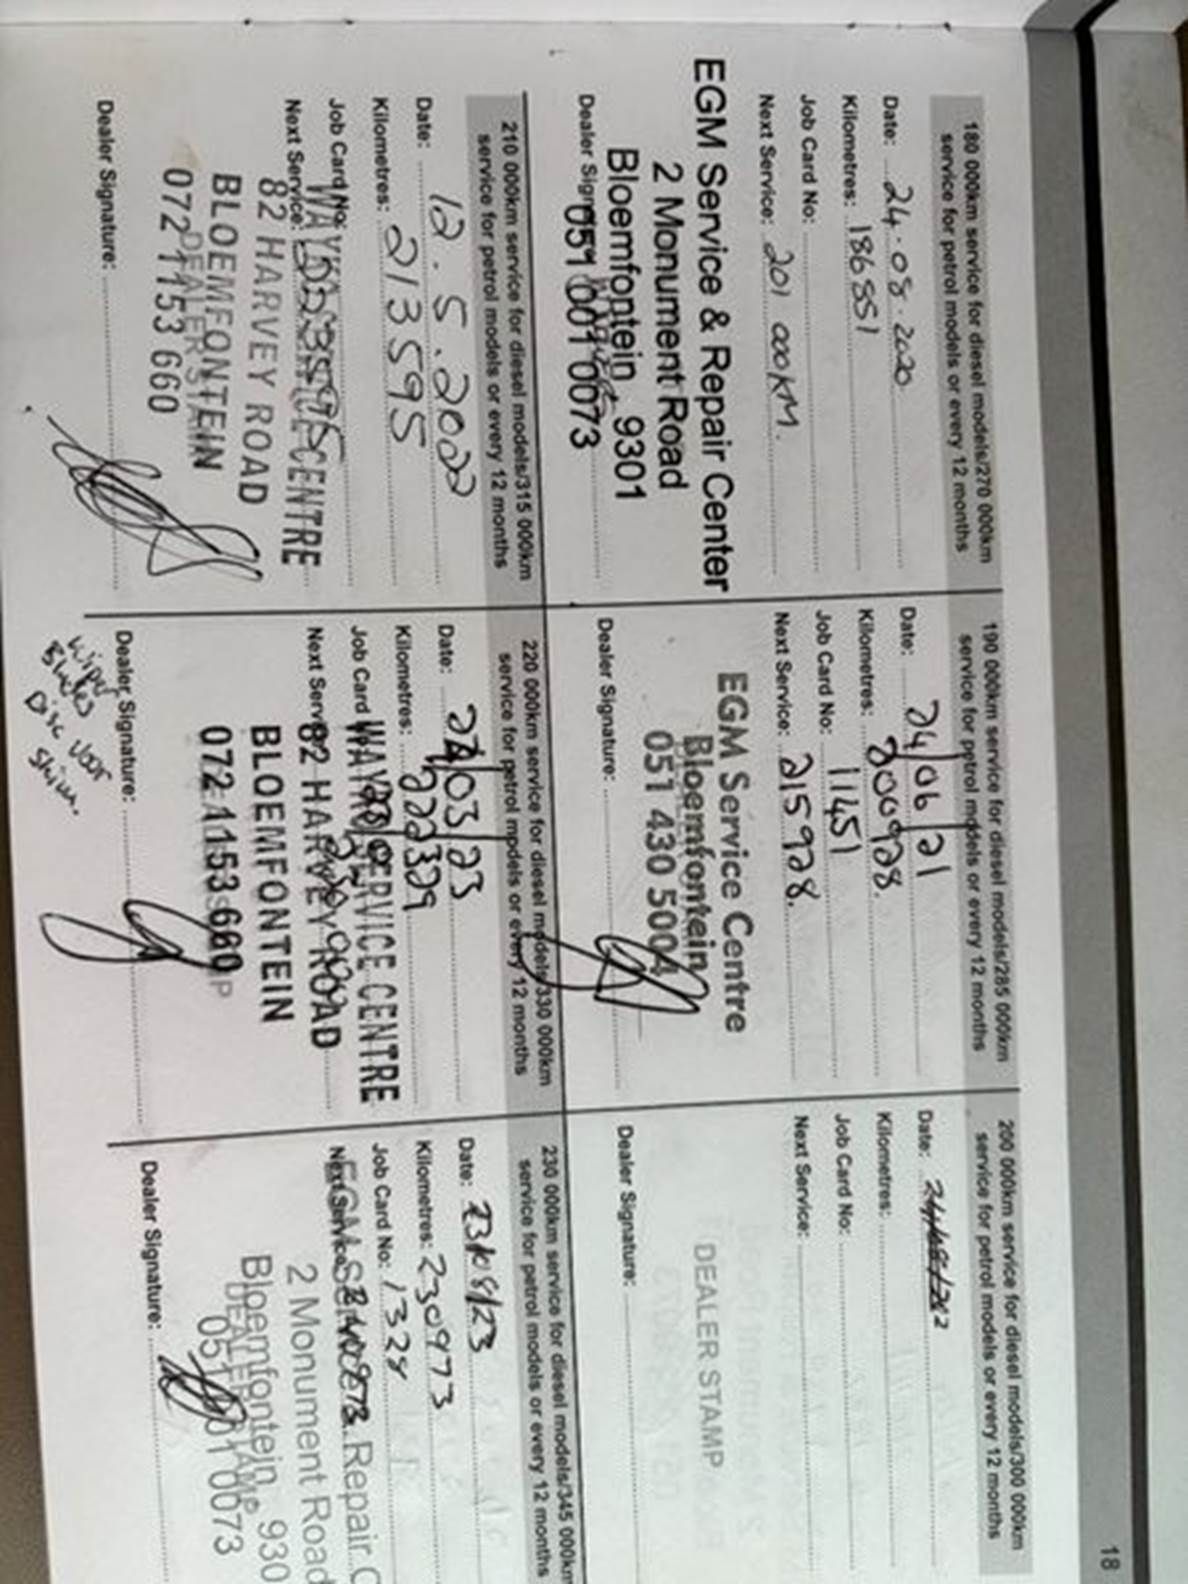 18
180 000km service for diesel models/270 000km
service for petrol models or every 12 months
Date: 24.08.2020
Kilometres: 186551
Job Card No:
Next Service: 201 000KM.
EGM Service & Repair Center
2 Monument Road
Bloemfontein, 9301
051 001 0073
Dealer Signature:
190 000km service for diesel models/285 000km
service for petrol models or every 12 months
Date: 24/06/21
Kilometres: 200928.
Job Card No: 11451
Next Service: 215928.
EGM Service Centre
Bloemfontein
051 430 5004
Dealer Signature:
200 000km service for diesel models/300 000km
service for petrol models or every 12 months
Date:
Kilometres:
Job Card No:
Next Service:
DEALER STAMP
Dealer Signature:
210 000km service for diesel models/315 000km
service for petrol models or every 12 months
Date: 12.5.2022
Kilometres: 213595
Job Card No:
Next Service:
SERVICE CENTRE
82 HARVEY ROAD
BLOEMFONTEIN
DEALER STAMP
072 1153 660
Dealer Signature:
220 000km service for diesel models/330 000km
service for petrol models or every 12 months
Date: 22/03/23
Kilometres: 222329
Job Card
SERVICE CENTRE
Next Serv
82 HARVEY ROAD
BLOEMFONTEIN
072 1153 660
Dealer Signature:
Wiper
Blades
Disc voor
skim.
230 000km service for diesel models/345 000km
service for petrol models or every 12 months
Date: 23/08/23
Kilometres: 230973
Job Card No: 1328
Next Service:
EGM Service & Repair C
2 Monument Road
Bloemfontein, 930
DEALER STAMP
051 001 0073
Dealer Signature: